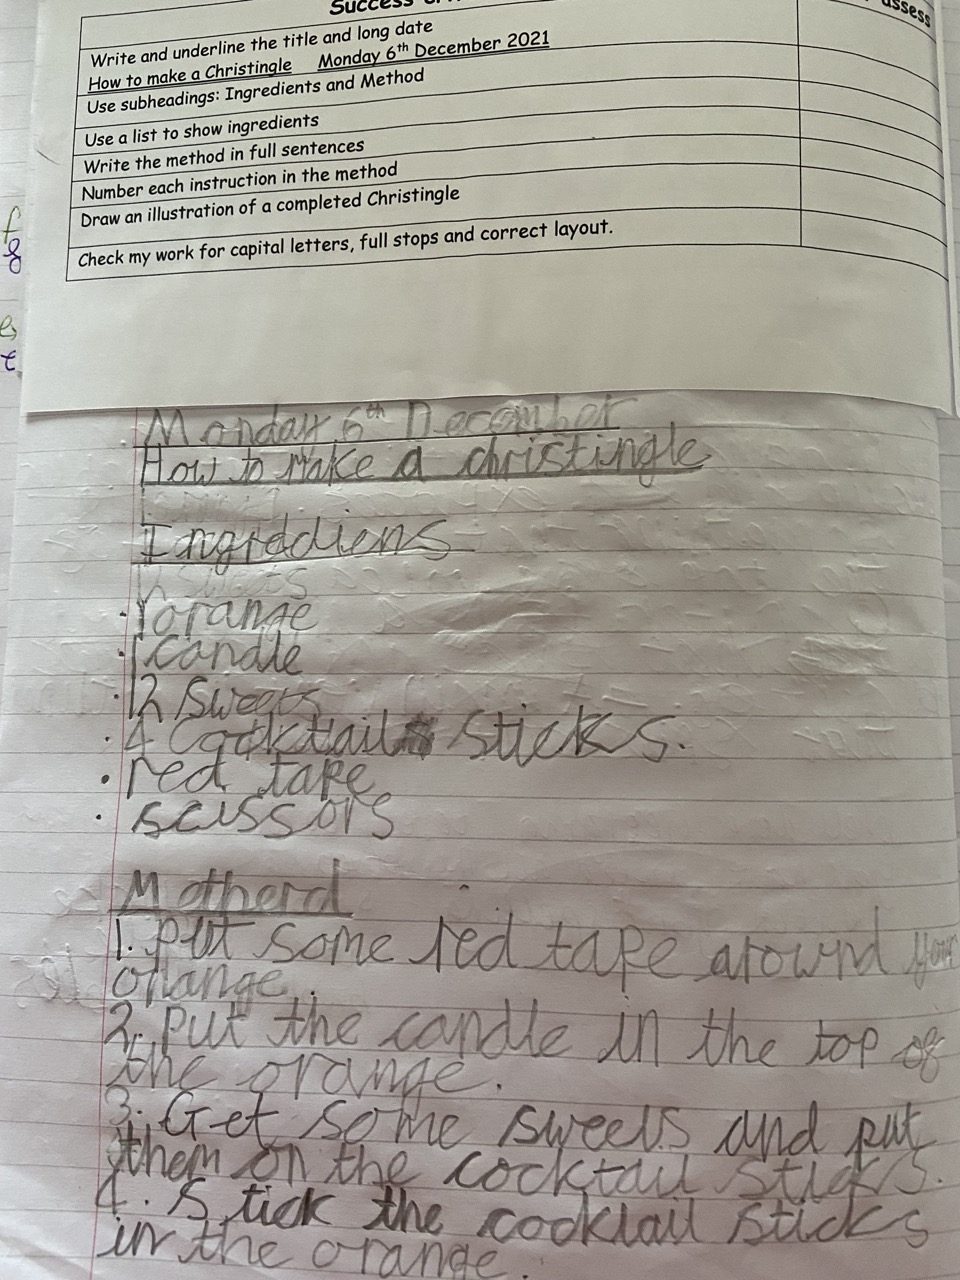 Success
assess
Write and underline the title and long date
How to make a Christingle Monday 6th December 2021
Use subheadings: Ingredients and Method
Use a list to show ingredients
Write the method in full sentences
Number each instruction in the method
Draw an illustration of a completed Christingle
Check my work for capital letters, full stops and correct layout.
Monday 6th December
How to make a christingle
Ingrediens
· 1 orange
· 1 candle
· 12 sweets
· 4 cocktail sticks.
· red tape
· scissors
Motherd
1. put some red tape around your
orange.
2. put the candle in the top of
the orange.
3. Get some sweets and put
them on the cocktail sticks.
4. Stick the cocktail sticks
in the orange.